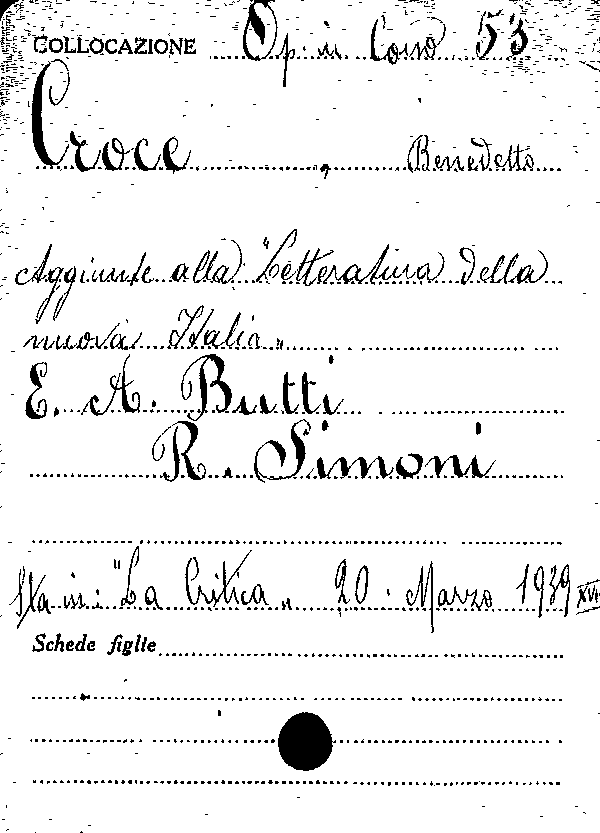 COLLOCAZIONE Op. in Corso 53
Croce , Benedetto
Aggiunte alla "Letteratura della
nuova Italia"
E. A. Butti
R. Simoni
Sta in: "La Critica" 20 Marzo 1939 XVII
Schede figlie